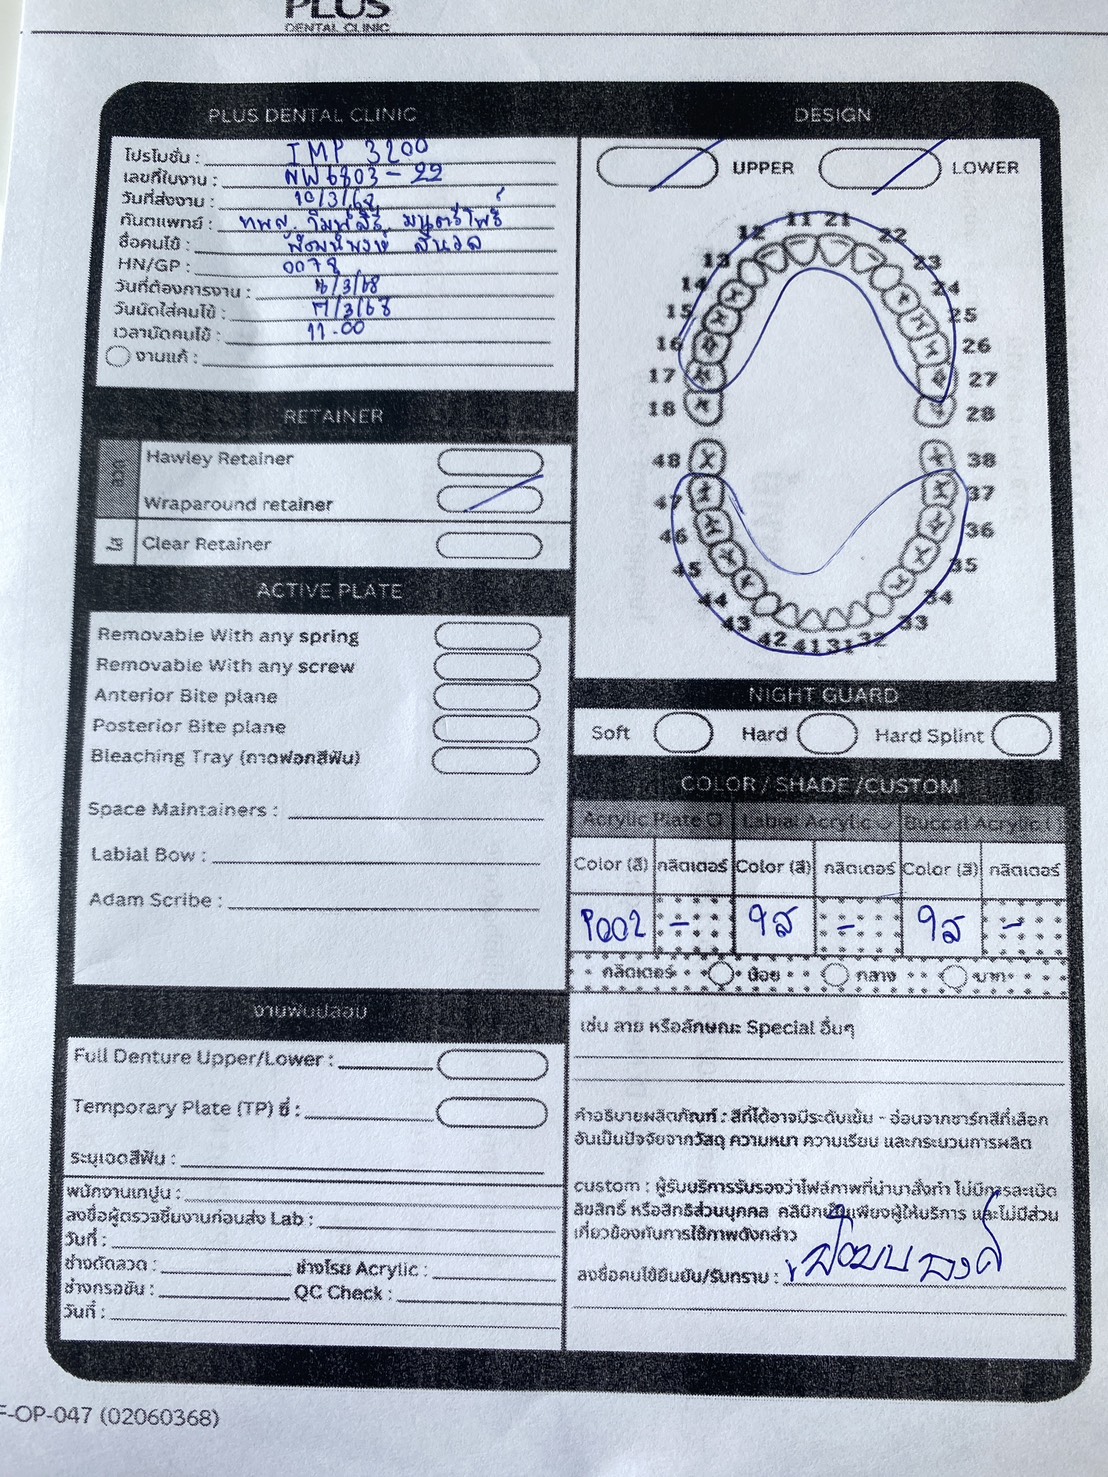 PLUS
DENTAL CLINIC
PLUS DENTAL CLINIC
โปรโมชั่น : IMP 3200
เลขที่ใบงาน : NW6803-22
วันที่ส่งงาน : 10/3/68
ทันตแพทย์ :
ชื่อคนไข้ :
HN/GP : 0078
วันที่ต้องการงาน : 16/3/68
วันนัดใส่คนไข้ : 17/3/68
เวลานัดคนไข้ : 11.00
งานแก้ :
RETAINER
Hawley Retainer
Wraparound retainer
ใส
Clear Retainer
ACTIVE PLATE
Removable With any spring
Removable With any screw
Anterior Bite plane
Posterior Bite plane
Bleaching Tray (ถาดฟอกสีฟัน)
Space Maintainers :
Labial Bow :
Adam Scribe :
งานฟันปลอม
Full Denture Upper/Lower :
Temporary Plate (TP) ซี่ :
ระบุเฉดสีฟัน :
พนักงานเทปูน :
ลงชื่อผู้ตรวจชิ้นงานก่อนส่ง Lab :
วันที่ :
ช่างดัดลวด : ช่างโรย Acrylic :
ช่างกรอขัด : QC Check :
วันที่ :
DESIGN
UPPER LOWER
11 21
12 22
13 23
14 24
15 25
16 26
17 27
18 28
48 38
47 37
46 36
45 35
44 34
43 33
42 41 31 32
NIGHT GUARD
Soft Hard Hard Splint
COLOR / SHADE /CUSTOM
Acrylic Plate Labial Acrylic Buccal Acrylic
Color (สี) กลิตเตอร์ Color (สี) กลิตเตอร์ Color (สี) กลิตเตอร์
P002 - ใส - ใส -
กลิตเตอร์ น้อย กลาง มาก
เช่น ลาย หรือลักษณะ Special อื่นๆ
คำอธิบายผลิตภัณฑ์ : สีที่ได้อาจมีระดับเข้ม - อ่อนจากชาร์ทสีที่เลือก
อันเป็นปัจจัยจากวัสดุ ความหนา ความเรียบ และกระบวนการผลิต
custom : ผู้รับบริการรับรองว่าไฟล์ภาพที่นำมาสั่งทำ ไม่มีการละเมิด
ลิขสิทธิ์ หรือสิทธิส่วนบุคคล คลินิกเป็นเพียงผู้ให้บริการ และไม่มีส่วน
เกี่ยวข้องกับการใช้ภาพดังกล่าว
ลงชื่อคนไข้ยืนยัน/รับทราบ :
F-OP-047 (02060368)